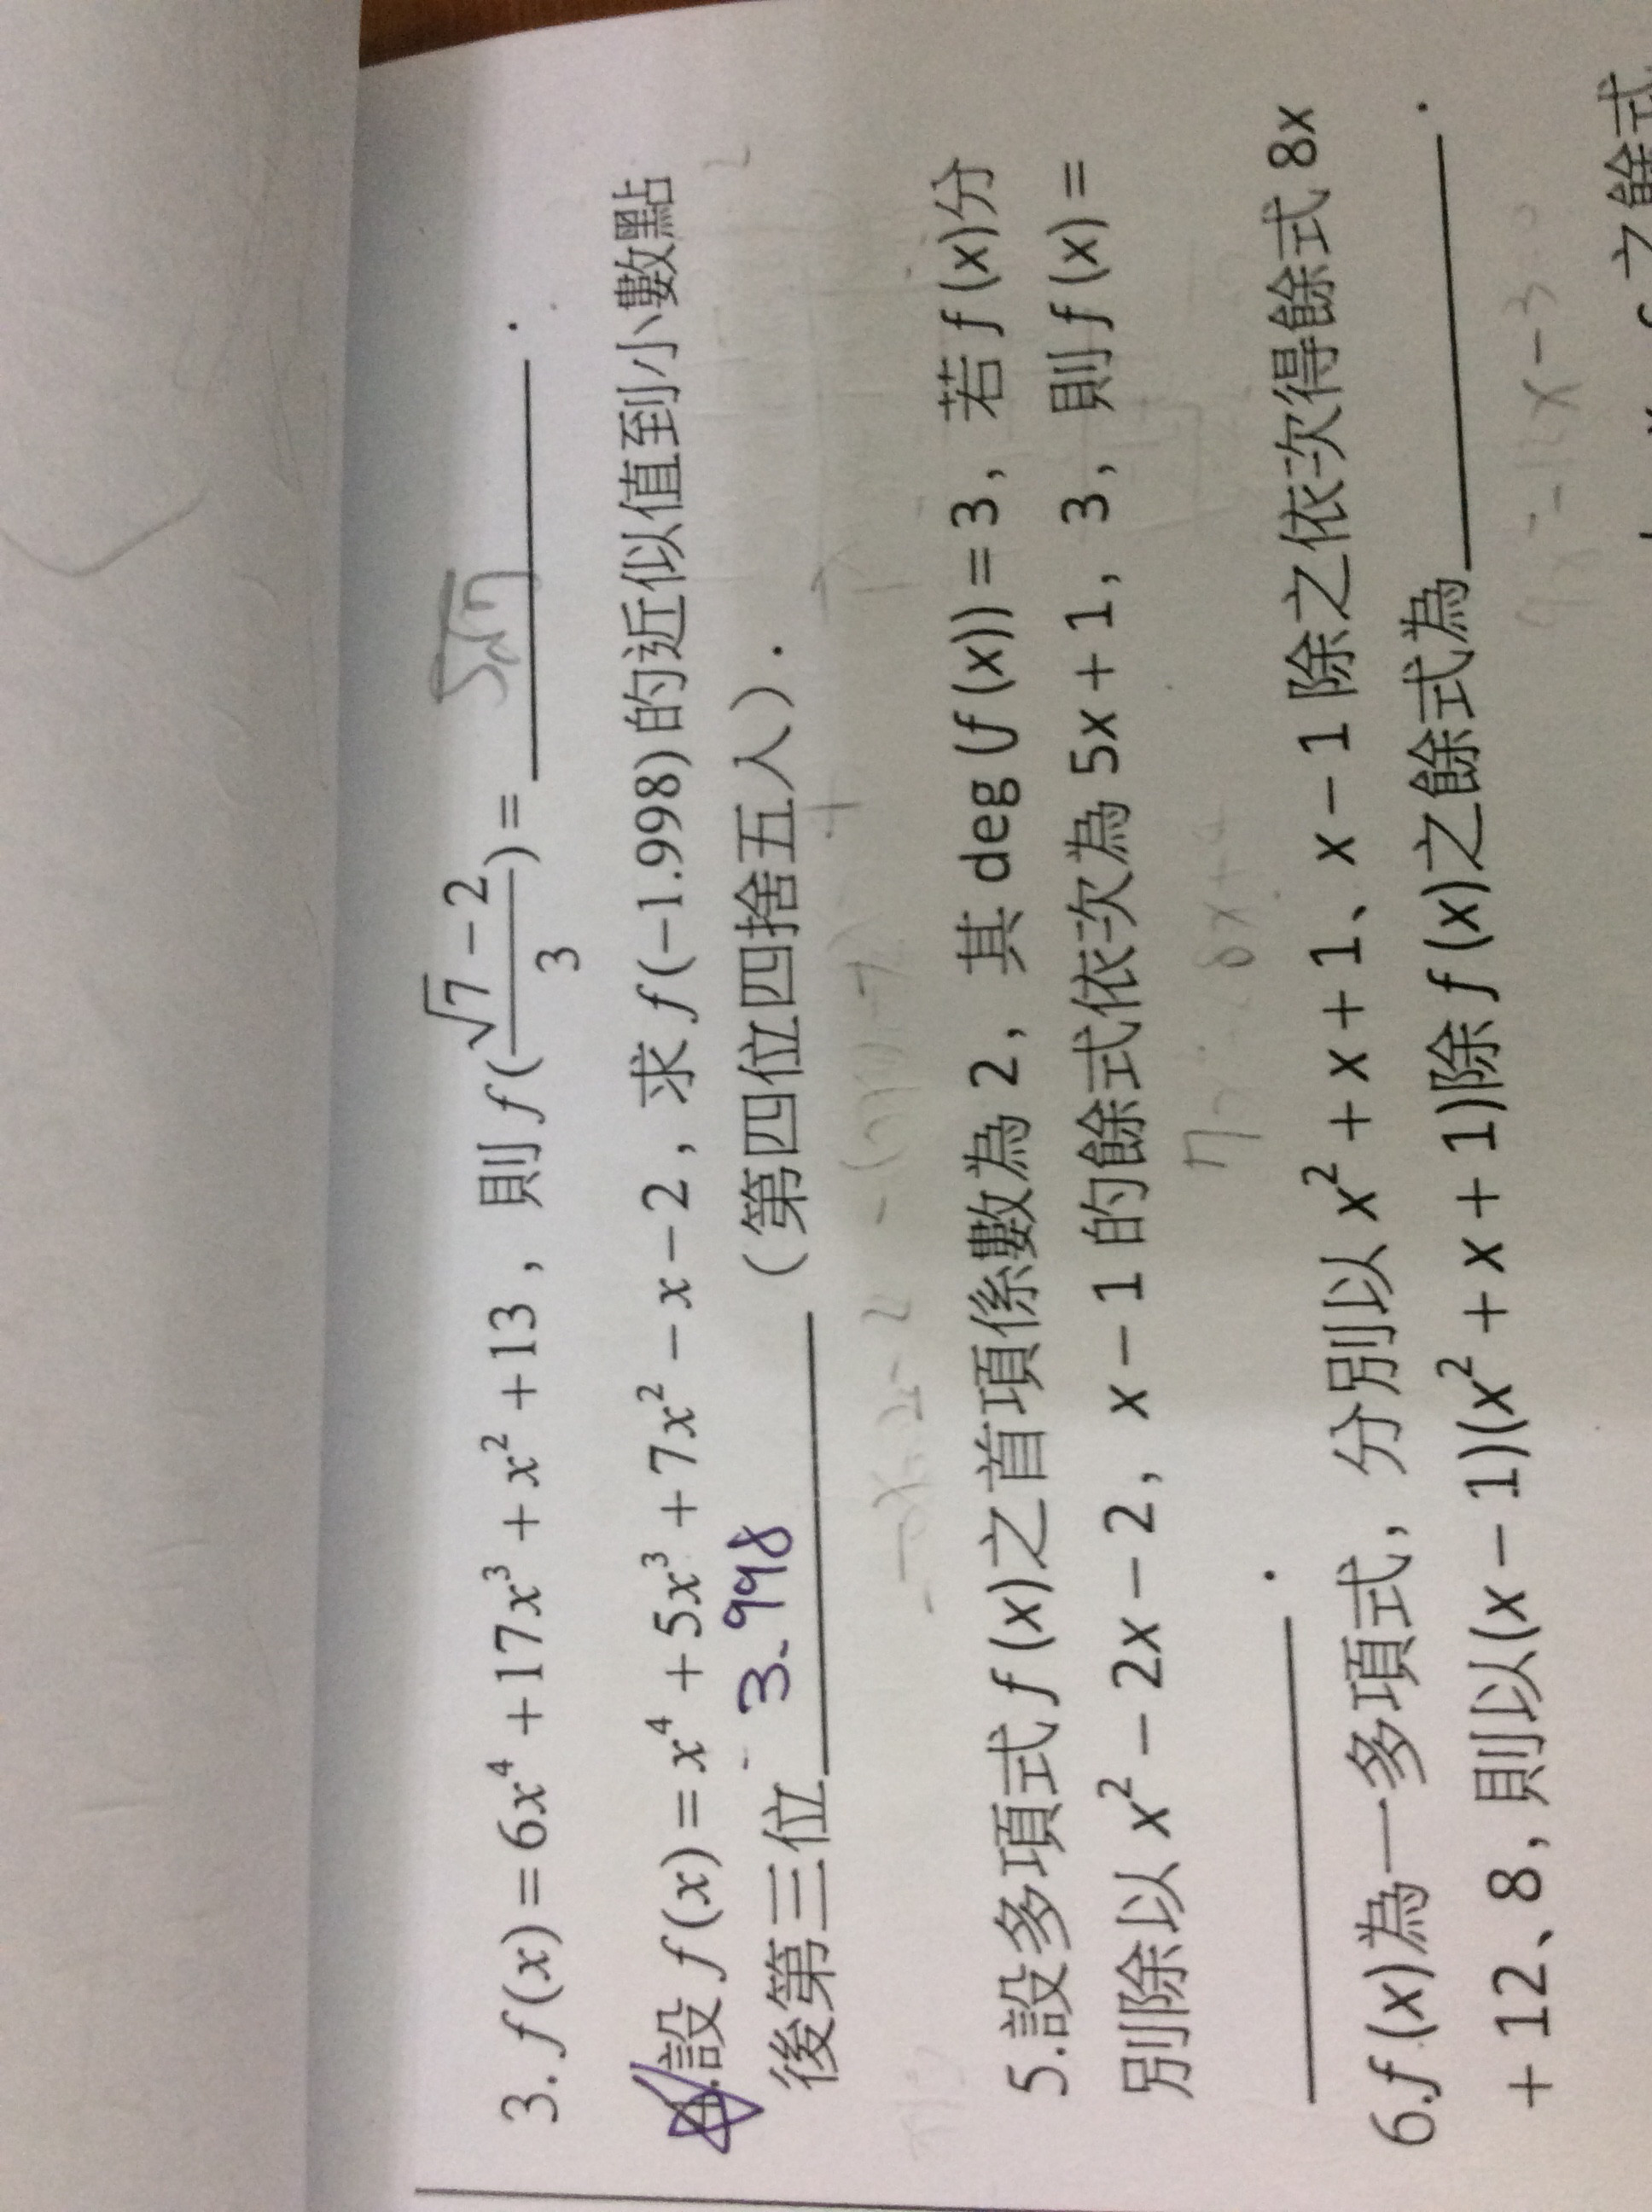 3. f(x) = 6x⁴ + 17x³ + x² + 13，則 f(\frac{√7 − 2}{3}) = ________． 5√7
4.設 f(x) = x⁴ + 5x³ + 7x² − x − 2，求 f(−1.998) 的近似值到小數點
後第三位 3.998 （第四位四捨五入）．
5.設多項式 f (x)之首項係數為 2，其 deg (f (x)) = 3，若 f (x)分
別除以 x² − 2x − 2，x − 1 的餘式依次為 5x + 1，3，則 f (x) =
________．
6.f (x)為一多項式，分別以 x² + x + 1、x − 1 除之依次得餘式 8x
+ 12、8，則以(x − 1)(x² + x + 1)除 f (x)之餘式為________．
之餘式